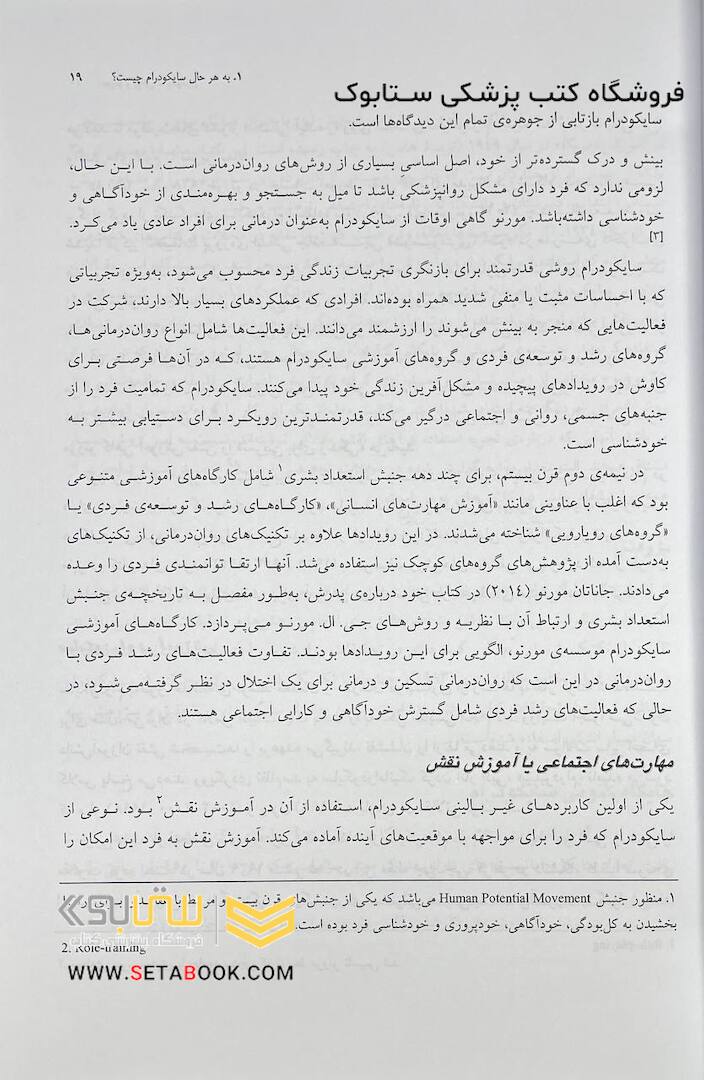 ۱. به هر حال سایکودرام چیست؟ ۱۹
فروشگاه کتب پزشکی ستابوک
سایکودرام بازتابی از جوهره‌ی تمام این دیدگاه‌ها است.
بینش و درک گسترده‌تر از خود، اصل اساسیِ بسیاری از روش‌های روان‌درمانی است. با این حال،
لزومی ندارد که فرد دارای مشکل روانپزشکی باشد تا میل به جستجو و بهره‌مندی از خودآگاهی و
خودشناسی داشته‌باشد. مورنو گاهی اوقات از سایکودرام به‌عنوان درمانی برای افراد عادی یاد می‌کرد.
[۳]
سایکودرام روشی قدرتمند برای بازنگری تجربیات زندگی فرد محسوب می‌شود، به‌ویژه تجربیاتی
که با احساسات مثبت یا منفی شدید همراه بوده‌اند. افرادی که عملکردهای بسیار بالا دارند، شرکت در
فعالیت‌هایی که منجر به بینش می‌شوند را ارزشمند می‌دانند. این فعالیت‌ها شامل انواع روان‌درمانی‌ها،
گروه‌های رشد و توسعه‌ی فردی و گروه‌های آموزشی سایکودرام هستند، که در آن‌ها فرصتی برای
کاوش در رویدادهای پیچیده و مشکل‌آفرین زندگی خود پیدا می‌کنند. سایکودرام که تمامیت فرد را از
جنبه‌های جسمی، روانی و اجتماعی درگیر می‌کند، قدرتمندترین رویکرد برای دستیابی بیشتر به
خودشناسی است.
در نیمه‌ی دوم قرن بیستم، برای چند دهه جنبش استعداد بشری۱ شامل کارگاه‌های آموزشی متنوعی
بود که اغلب با عناوینی مانند «آموزش مهارت‌های انسانی»، «کارگاه‌های رشد و توسعه‌ی فردی» یا
«گروه‌های رویارویی» شناخته می‌شدند. در این رویدادها علاوه بر تکنیک‌های روان‌درمانی، از تکنیک‌های
به‌دست آمده از پژوهش‌های گروه‌های کوچک نیز استفاده می‌شد. آنها ارتقا توانمندی فردی را وعده
می‌دادند. جاناتان مورنو (۲۰۱٤) در کتاب خود درباره‌ی پدرش، به‌طور مفصل به تاریخچه‌ی جنبش
استعداد بشری و ارتباط آن با نظریه و روش‌های جی. ال. مورنو می‌پردازد. کارگاه‌های آموزشی
سایکودرام موسسه‌ی مورنو، الگویی برای این رویدادها بودند. تفاوت فعالیت‌های رشد فردی با
روان‌درمانی در این است که روان‌درمانی تسکین و درمانی برای یک اختلال در نظر گرفته‌می‌شود، در
حالی که فعالیت‌های رشد فردی شامل گسترش خودآگاهی و کارایی اجتماعی هستند.
مهارت‌های اجتماعی یا آموزش نقش
یکی از اولین کاربردهای غیر بالینی سایکودرام، استفاده از آن در آموزش نقش۲ بود. نوعی از
سایکودرام که فرد را برای مواجهه با موقعیت‌های آینده آماده می‌کند. آموزش نقش به فرد این امکان را
۱. منظور جنبش Human Potential Movement می‌باشد که یکی از جنبش‌های قرن بیست و مرتبط با
بخشیدن به کل‌بودگی، خودآگاهی، خودپروری و خودشناسی فرد بوده است.
2. Role-training
ستابوک
فروشگاه اینترنتی کتاب
WWW.SETABOOK.COM